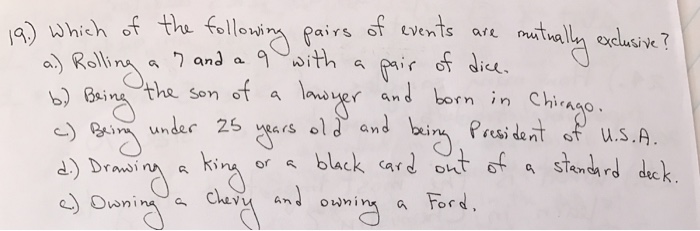 19.) Which of the following pairs of events are mutually exclusive?
a.) Rolling a 7 and a 9 with a pair of dice.
b.) Being the son of a lawyer and born in Chicago.
c.) Being under 25 years old and being President of U.S.A.
d.) Drawing a king or a black card out of a standard deck.
e.) Owning a Chevy and owning a Ford.